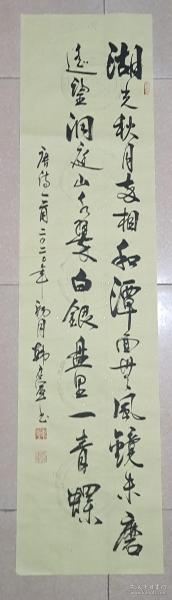 湖光秋月两相和潭面无风镜未磨
遥望洞庭山水翠白银盘里一青螺
唐诗一首二〇二〇年